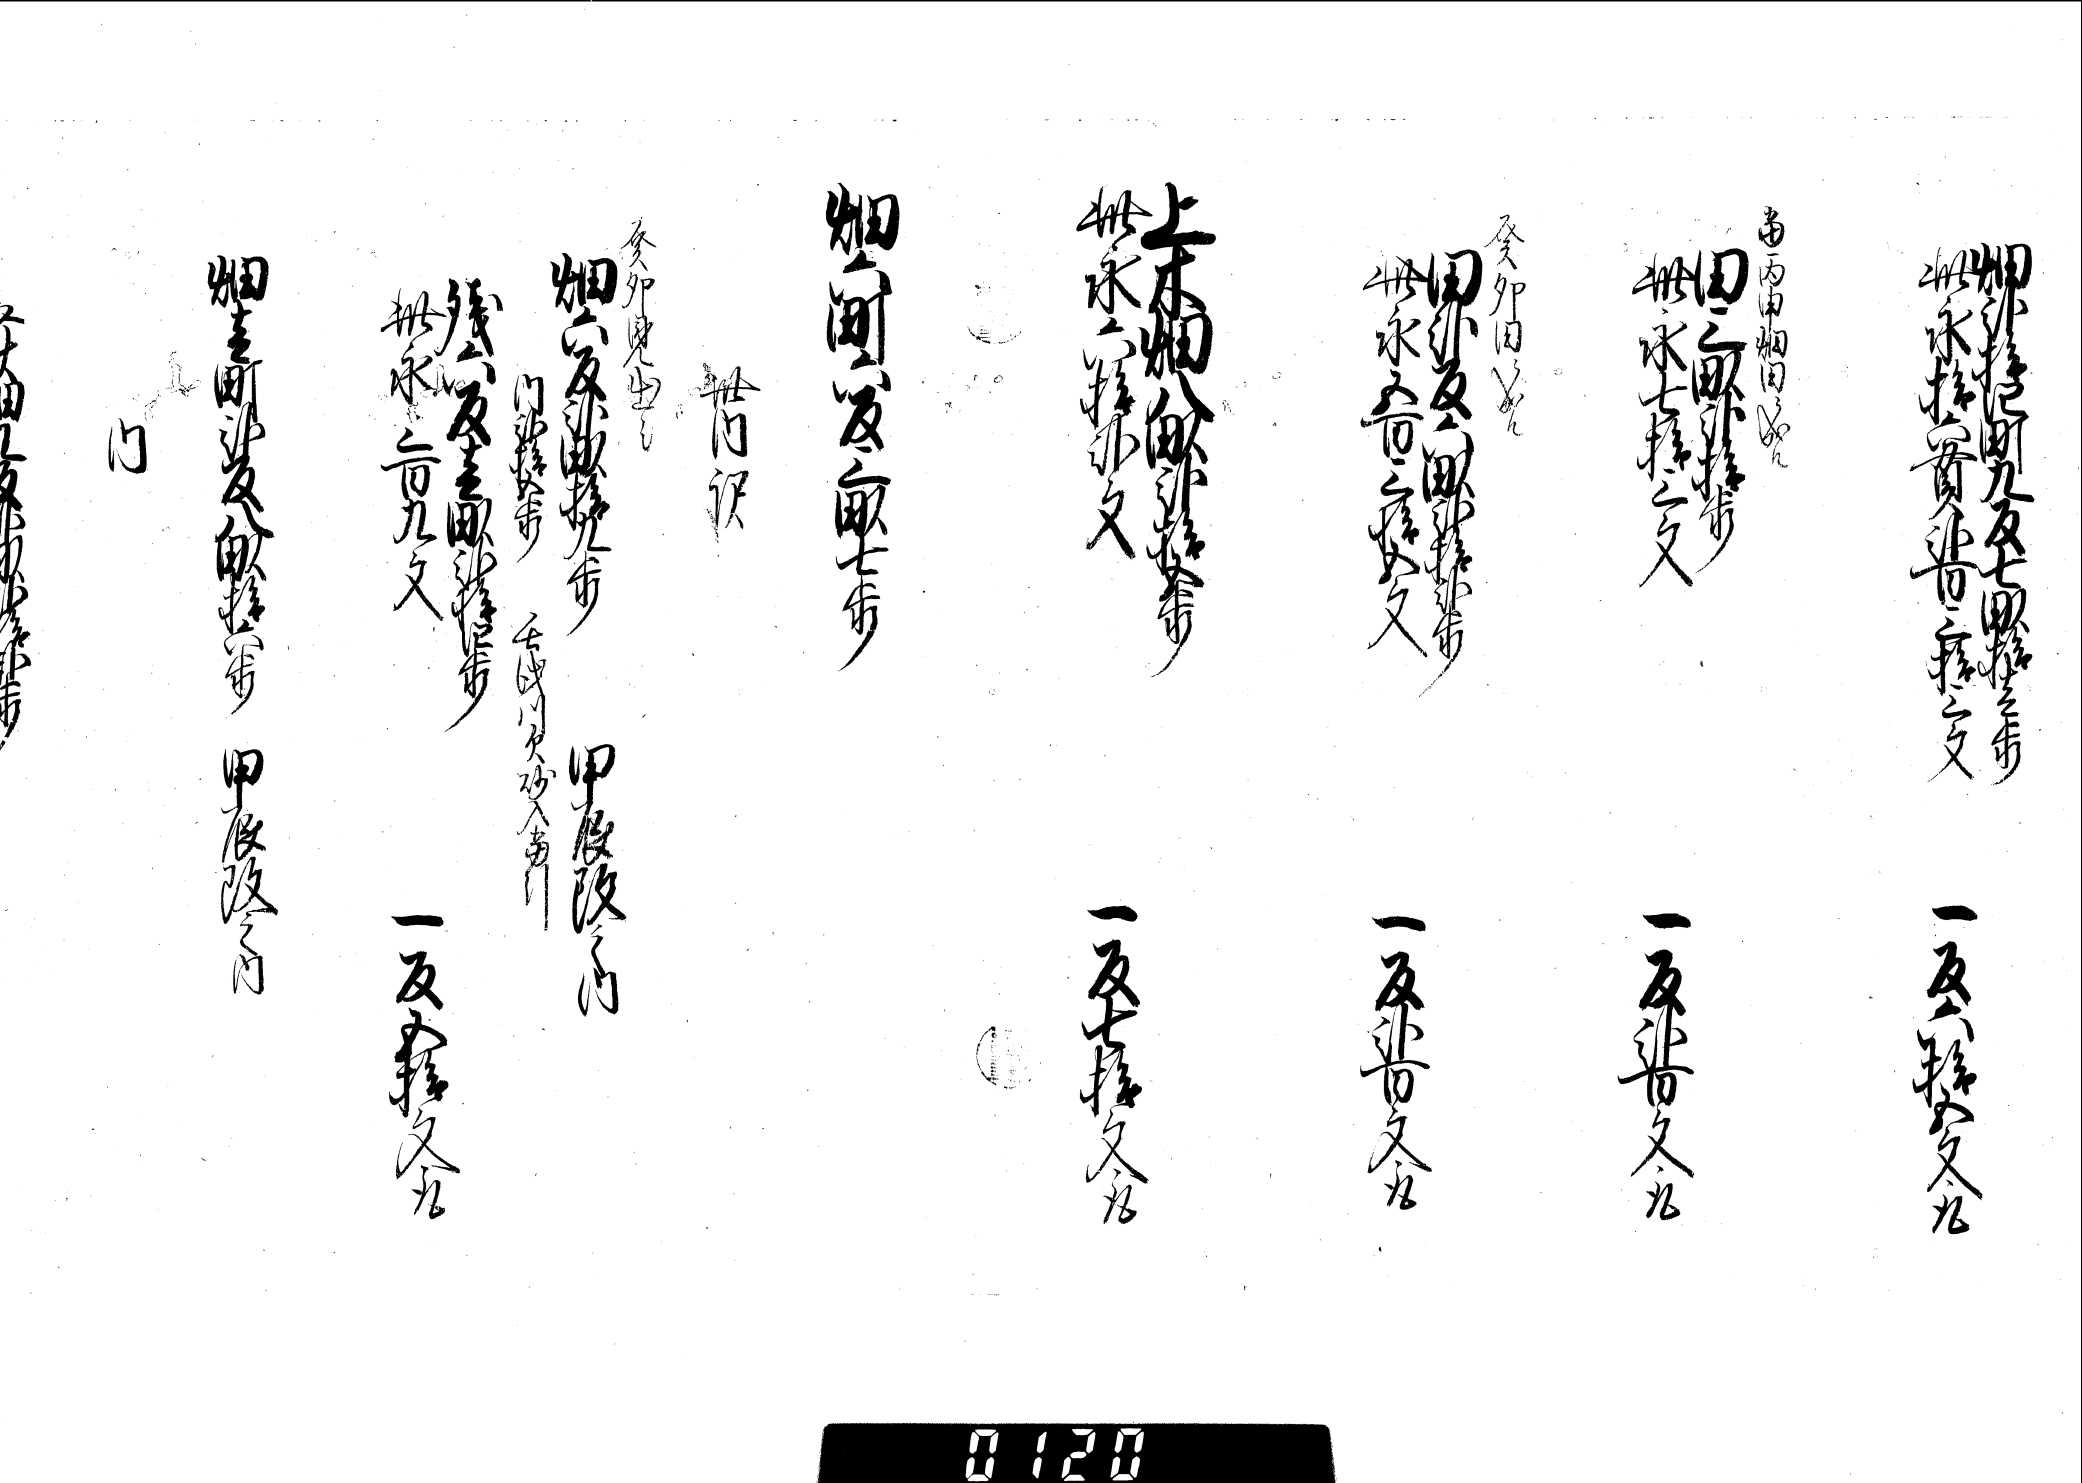 畑弐拾四町九反七畝拾壱歩
此永拾六貫弐百三拾三文　一反六拾五文取
当丙申畑田ニ成ル
田三畝弐拾歩
此永七拾三文　一反弐百文取
癸卯田ニ成ル
田弐反六畝弐拾弐歩
此永五百三拾五文　一反弐百文取
上木畑八畝弐拾五歩
此永六拾弐文　一反七拾文取
畑六町六反三畝七歩
此内訳
癸卯見出之
畑六反弐畝拾九歩　甲辰改之内
内弐拾五歩　壬戌川欠砂入当引
残六反壱畝弐拾四歩
此永三百九文　一反五拾文取
畑壱町弐反八畝拾六歩　甲辰改之内
内
0120